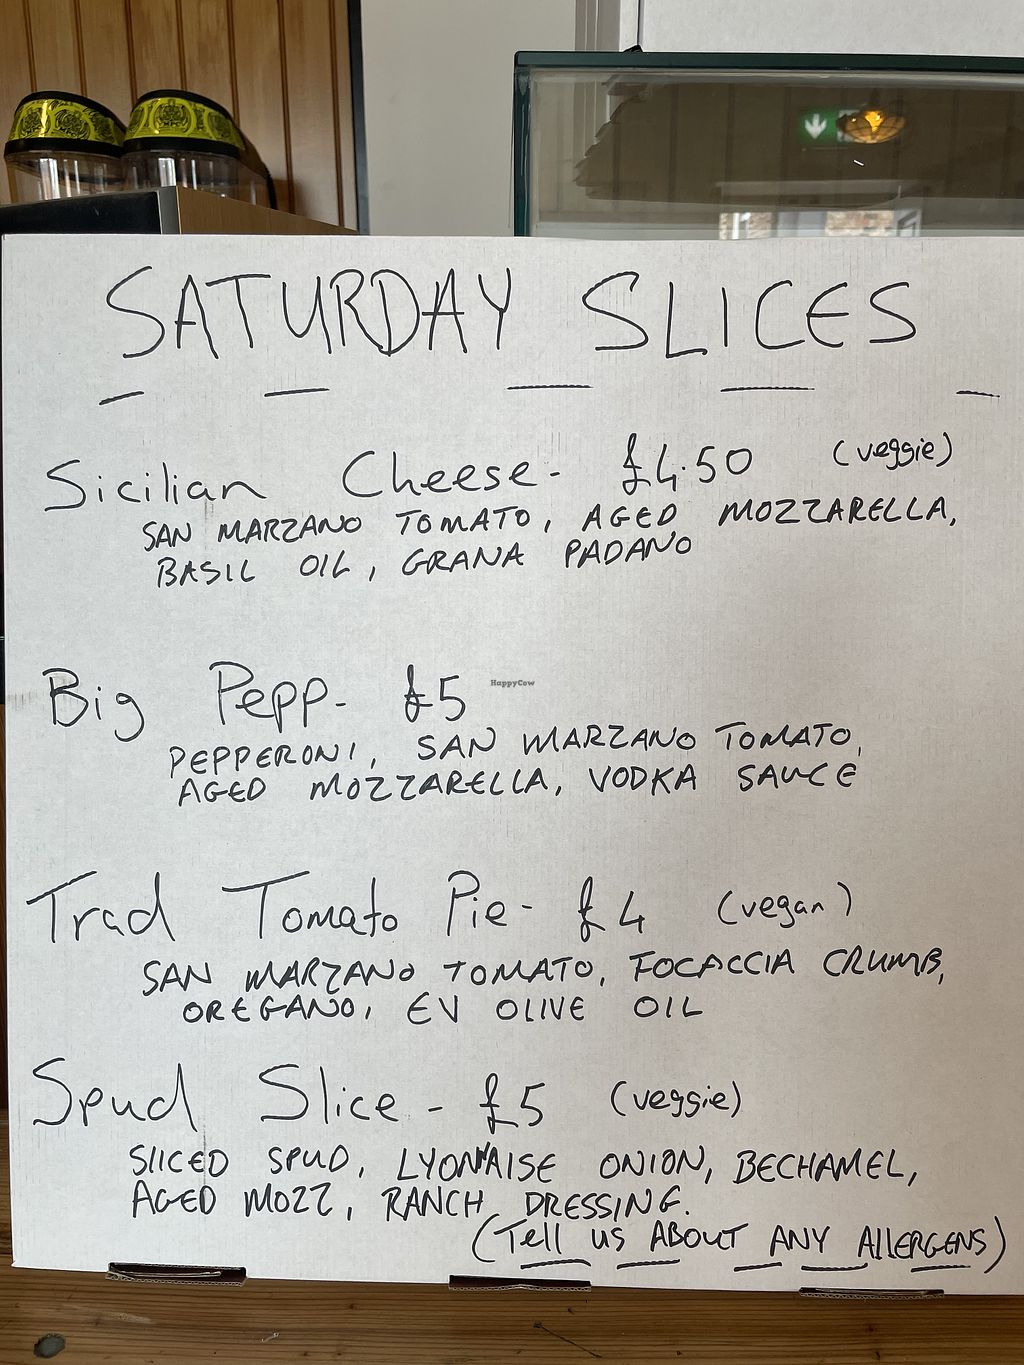 SATURDAY SLICES
Sicilian Cheese - £4.50 (veggie)
SAN MARZANO TOMATO, AGED MOZZARELLA,
BASIL OIL, GRANA PADANO
Big Pepp - £5
HappyCow
PEPPERONI, SAN MARZANO TOMATO,
AGED MOZZARELLA, VODKA SAUCE
Trad Tomato Pie - £4 (vegan)
SAN MARZANO TOMATO, FOCACCIA CRUMB,
OREGANO, EV OLIVE OIL
Spud Slice - £5 (veggie)
SlICED SPUD, LYONNAISE ONION, BECHAMEL,
AGED MOZZ, RANCH DRESSING.
(Tell us ABOUT ANY AllERGENS)